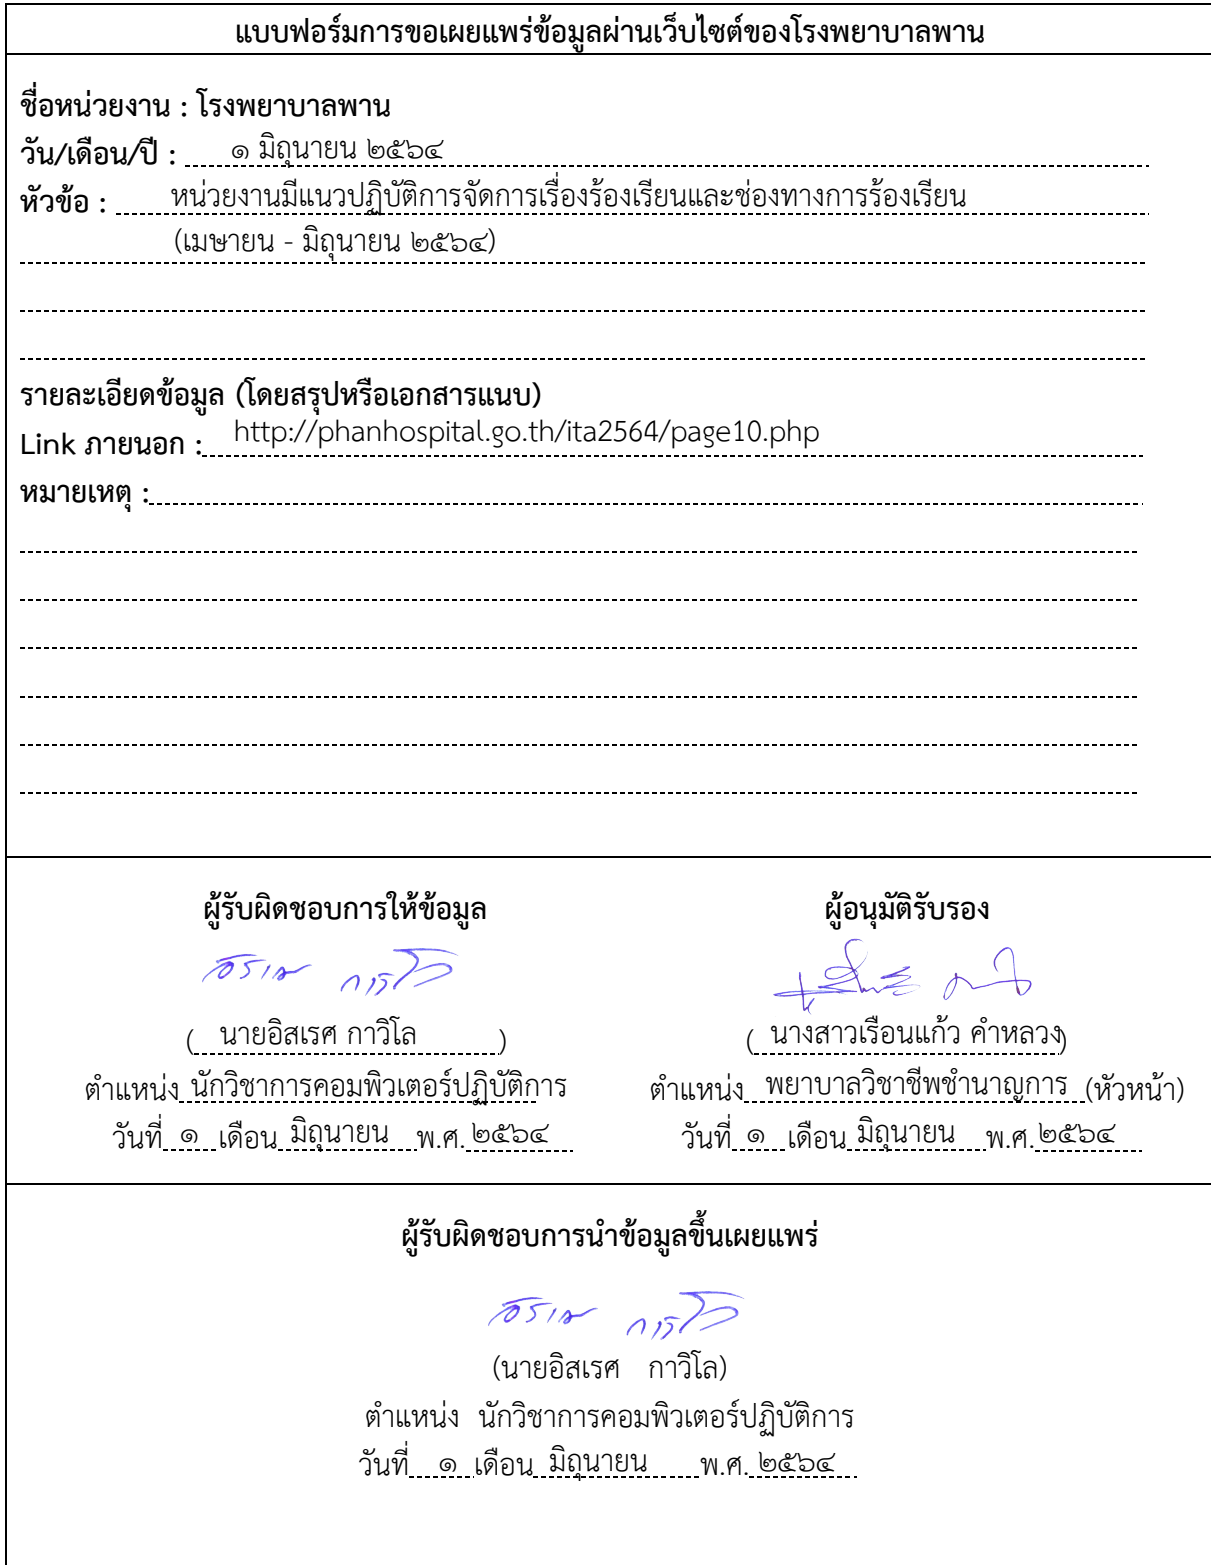 แบบฟอร์มการขอเผยแพร่ข้อมูลผ่านเว็บไซต์ของโรงพยาบาลพาน
ชื่อหน่วยงาน : โรงพยาบาลพาน
วัน/เดือน/ปี : ๑ มิถุนายน ๒๕๖๔
หัวข้อ : หน่วยงานมีแนวปฏิบัติการจัดการเรื่องร้องเรียนและช่องทางการร้องเรียน
(เมษายน - มิถุนายน ๒๕๖๔)
รายละเอียดข้อมูล (โดยสรุปหรือเอกสารแนบ)
Link ภายนอก : http://phanhospital.go.th/ita2564/page10.php
หมายเหตุ :
ผู้รับผิดชอบการให้ข้อมูล ผู้อนุมัติรับรอง
( นายอิสเรศ กาวิโล ) ( นางสาวเรือนแก้ว คำหลวง)
ตำแหน่ง นักวิชาการคอมพิวเตอร์ปฏิบัติการ ตำแหน่ง พยาบาลวิชาชีพชำนาญการ (หัวหน้า)
วันที่ ๑ เดือน มิถุนายน พ.ศ. ๒๕๖๔ วันที่ ๑ เดือน มิถุนายน พ.ศ. ๒๕๖๔
ผู้รับผิดชอบการนำข้อมูลขึ้นเผยแพร่
(นายอิสเรศ กาวิโล)
ตำแหน่ง นักวิชาการคอมพิวเตอร์ปฏิบัติการ
วันที่ ๑ เดือน มิถุนายน พ.ศ. ๒๕๖๔